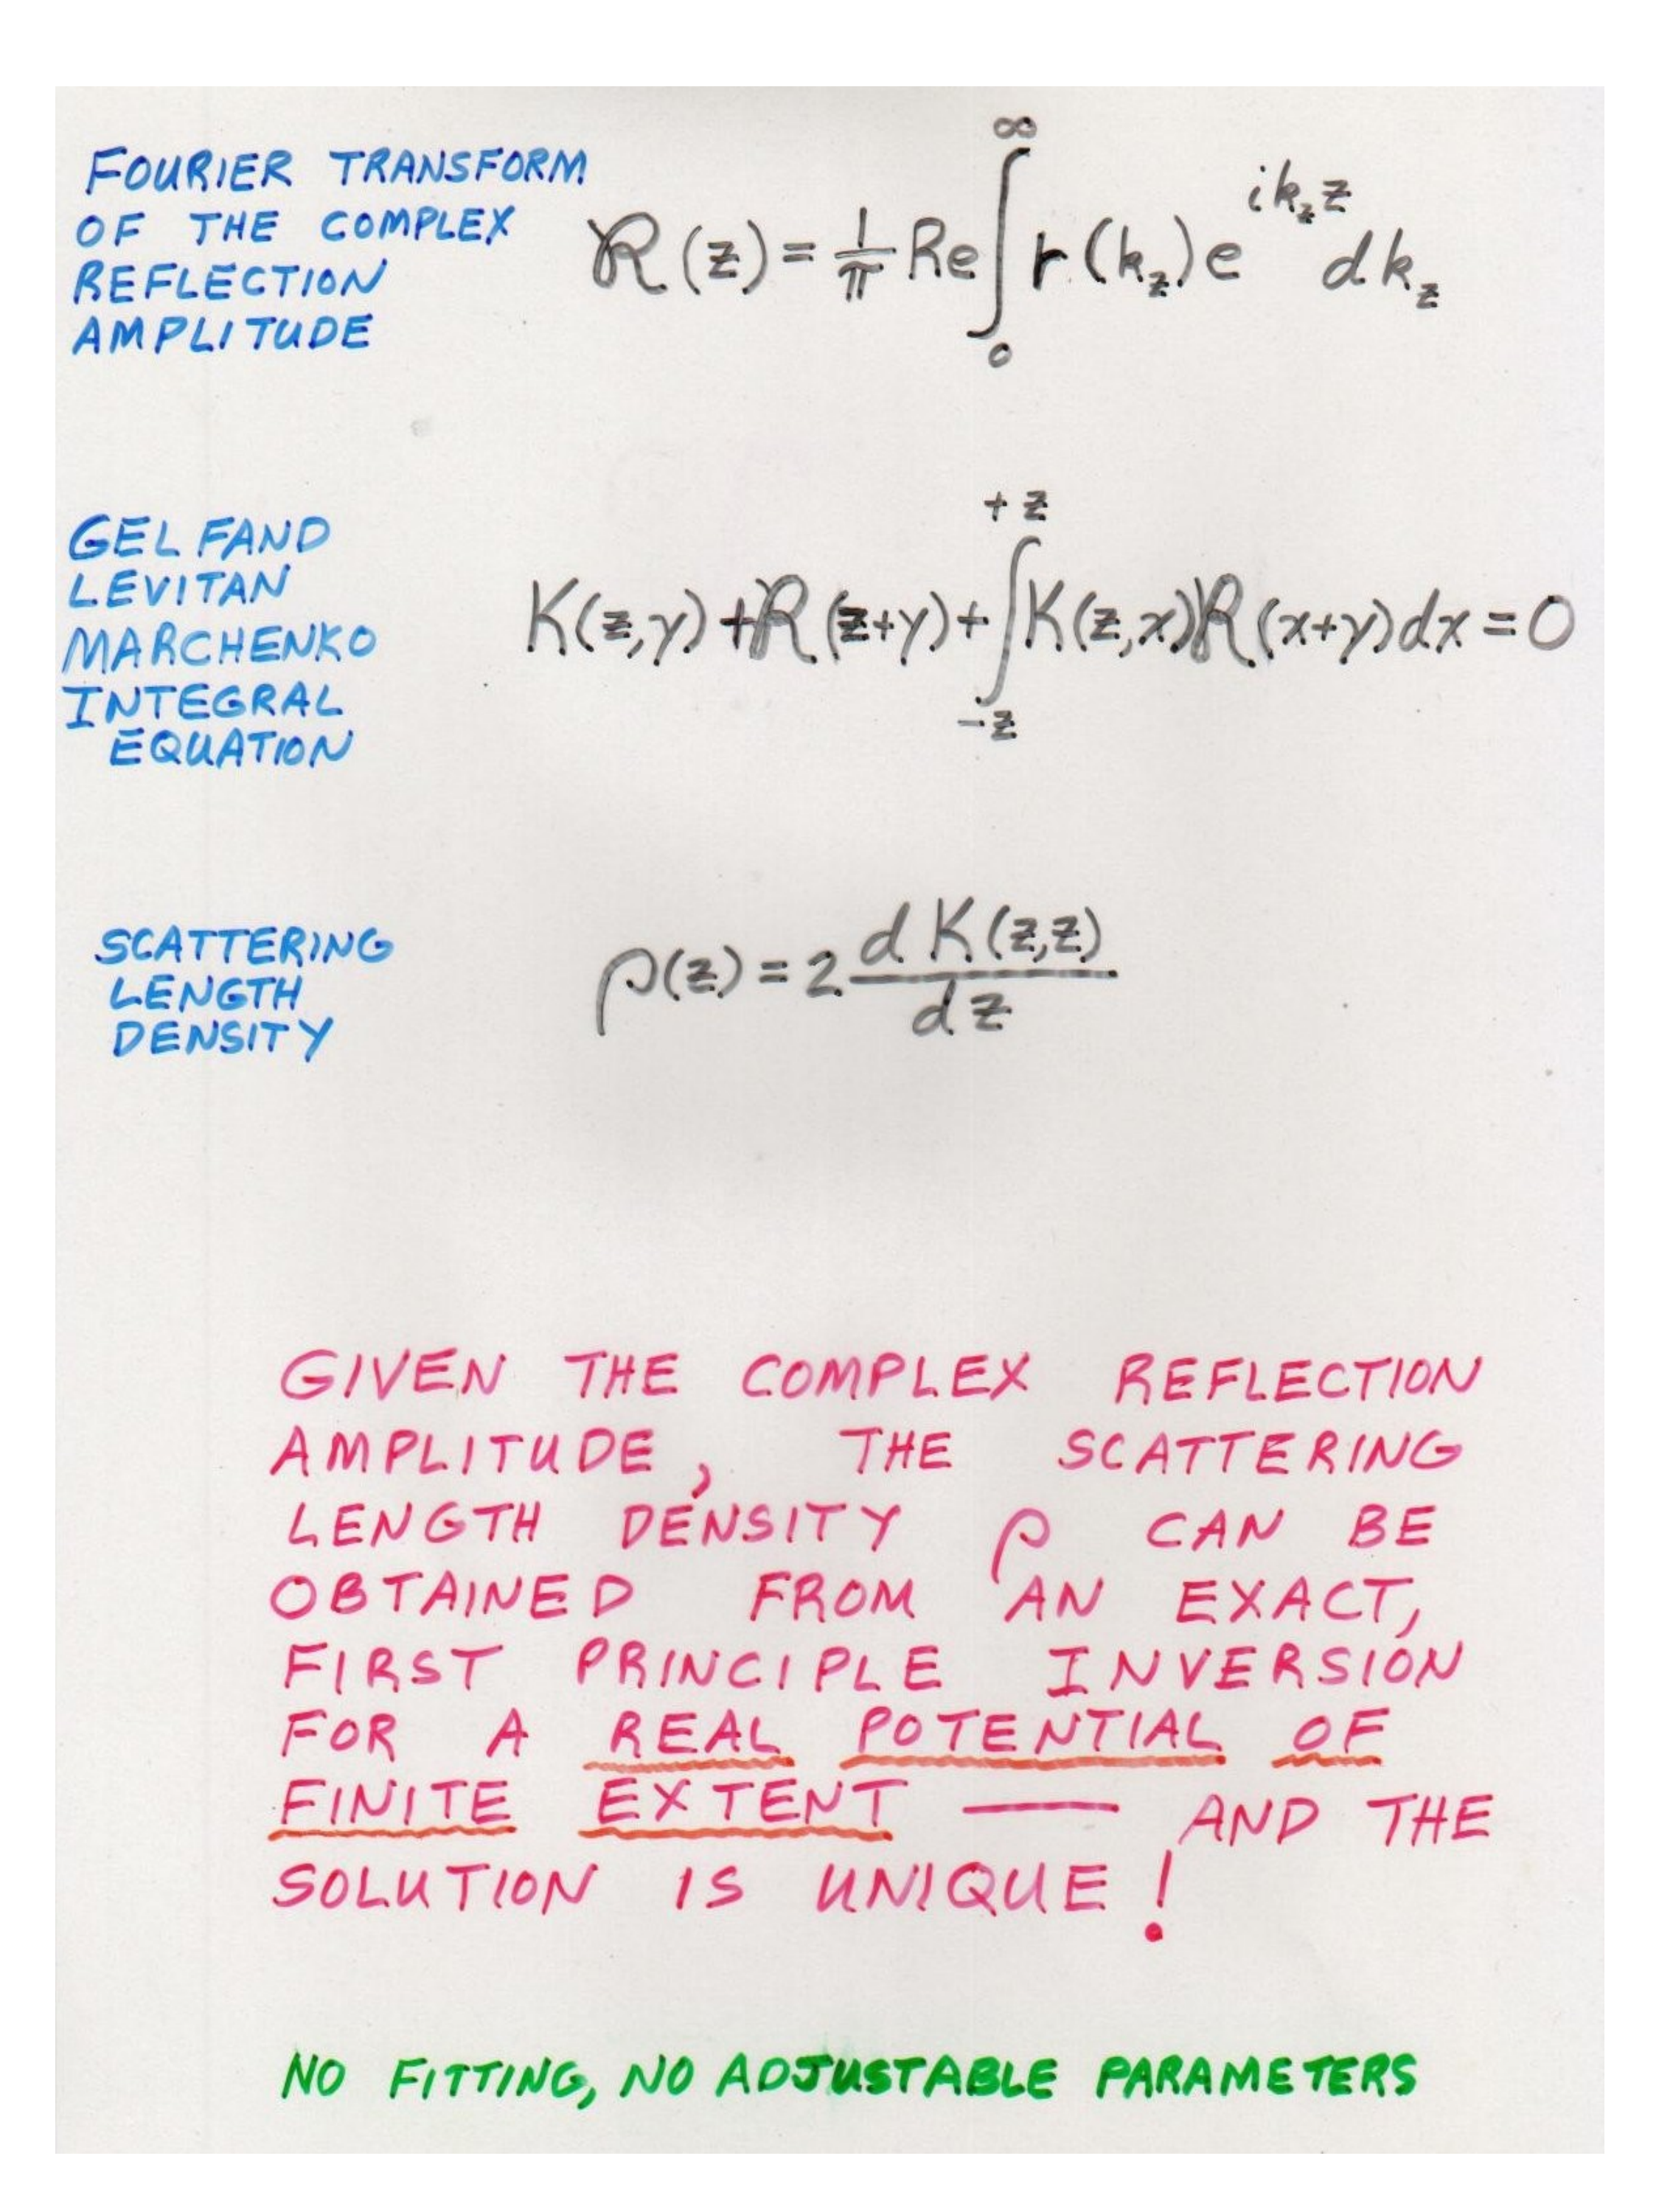 FOURIER TRANSFORM
OF THE COMPLEX
REFLECTION
AMPLITUDE
ℛ(z) = 1/π Re ∫₀^∞ r(k_z) e^{ik_z z} dk_z
GELFAND
LEVITAN
MARCHENKO
INTEGRAL
EQUATION
K(z,y) + ℛ(z+y) + ∫_{-z}^{+z} K(z,x) ℛ(x+y) dx = 0
SCATTERING
LENGTH
DENSITY
ρ(z) = 2 dK(z,z)/dz
GIVEN THE COMPLEX REFLECTION
AMPLITUDE, THE SCATTERING
LENGTH DENSITY ρ CAN BE
OBTAINED FROM AN EXACT,
FIRST PRINCIPLE INVERSION
FOR A REAL POTENTIAL OF
FINITE EXTENT — AND THE
SOLUTION IS UNIQUE!
NO FITTING, NO ADJUSTABLE PARAMETERS